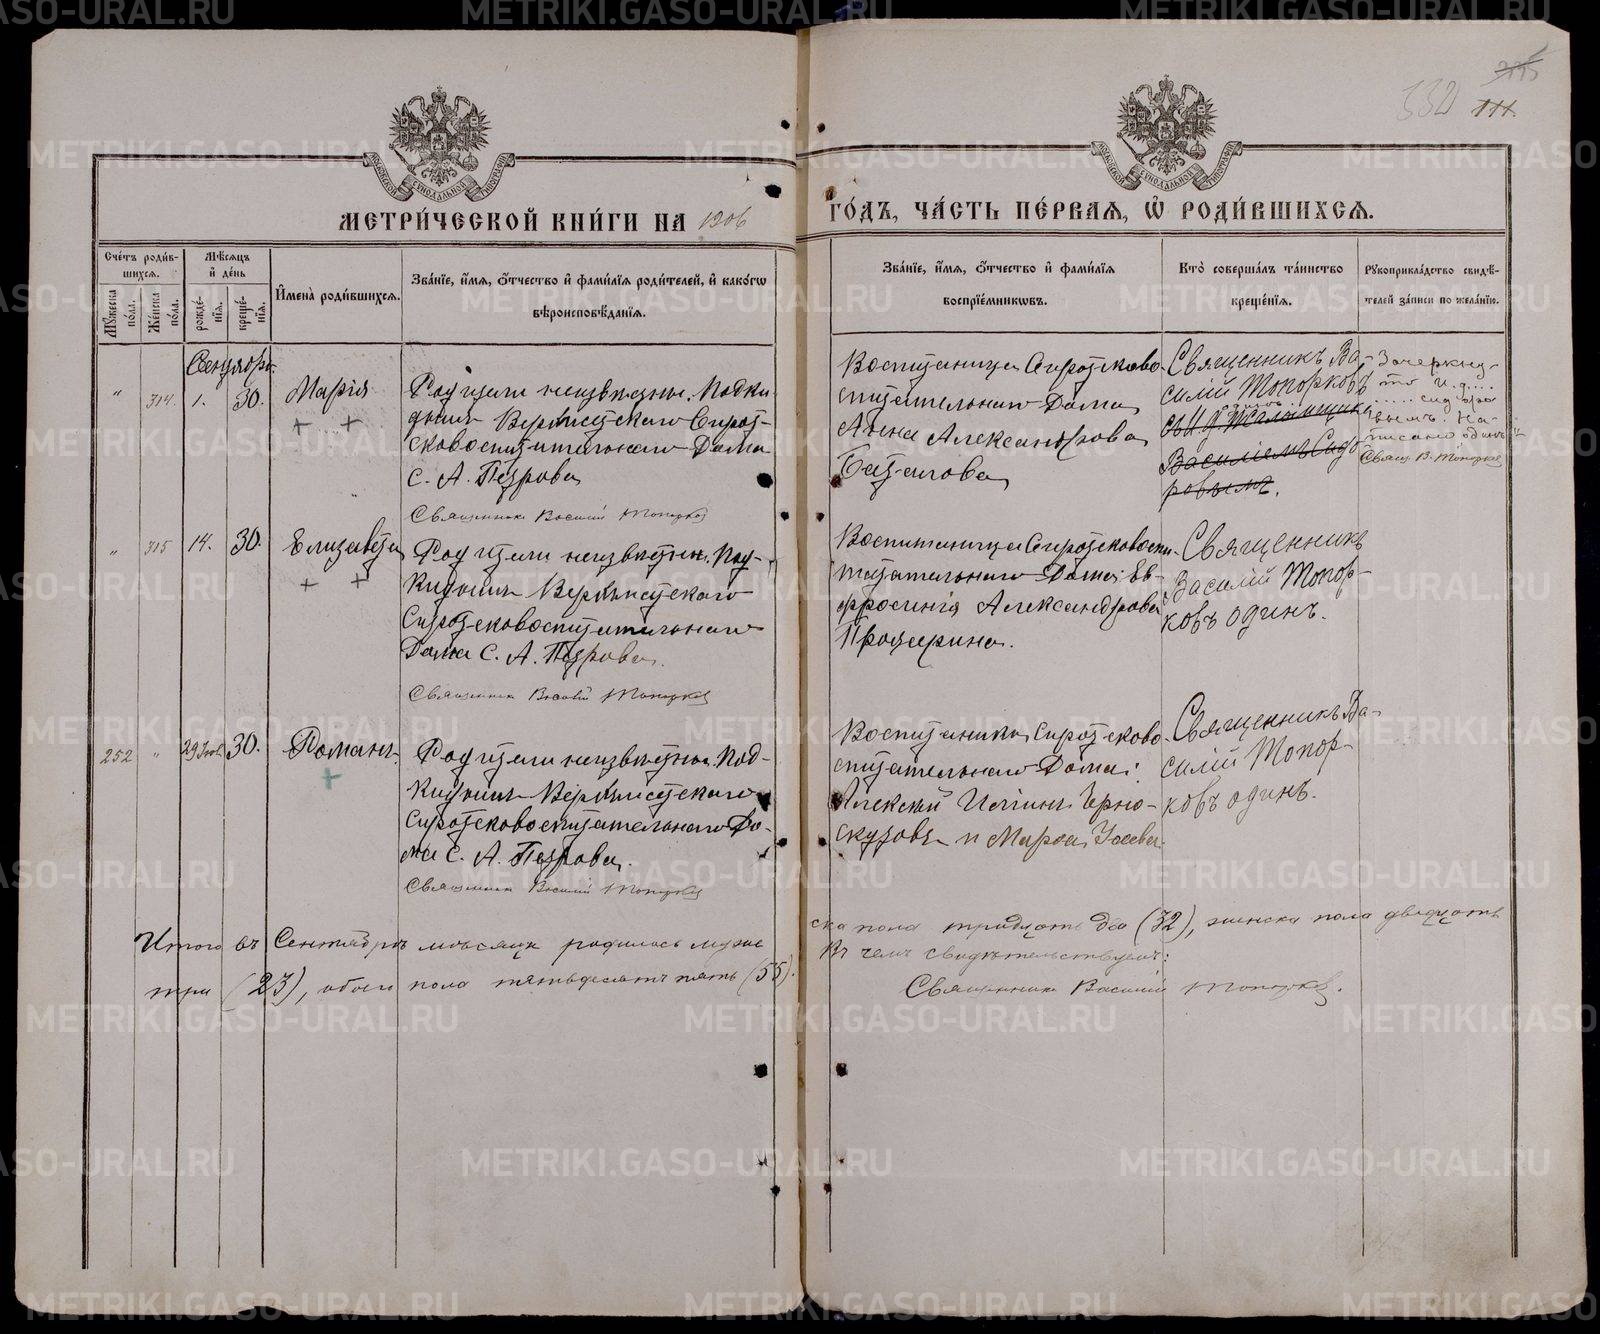 332
111.
МЕТРИ́ЧЕСКОЙ КНИ́ГИ НА 1906
ГО́ДЪ, ЧА́СТЬ ПЕ́РВАЯ, Ѡ РОДИ́ВШИХСЯ.
Сче́тъ роди́в-
шихся.
Мꙋ́жеска по́ла.
Же́нска по́ла.
Мѣ́сяцъ
и де́нь
рожде́-
нїя.
креще́-
нїя.
И҆мена̀ роди́вшихся.
Зва́нїе, и҆́мя, ѻ҆́тчество и҆ фами́лїя роди́телей, и҆ како́гѡ
вѣроисповѣ́данїя.
Зва́нїе, и҆́мя, ѻ҆́тчество и҆ фами́лїя
воспрїе́мникѡвъ.
Кто̀ соверша́лъ та́инство
креще́нїя.
Рꙋкоприкла́дство свидѣ́-
телей за́писи по жела́нїю.
Сентябрь.
" 314. 1. 30. Марія
Родители неизвѣстны. Подки-
дышъ Верхъисетскаго Сирот-
сковоспитательнаго Дома
С. А. Петрова
Священникъ Василій Топорковъ
Воспитаница Сиротсково-
спитательнаго Дома
Анна Александрова
Баталова
Священникъ Ва-
силій Топорковъ
одинъ.
съ И. д. Псаломщика
Василіемъ Сидо-
ровымъ.
Зачеркну-
то и. д....
......сидоро
вымъ. На-
писано одинъ
Свящ. В. Топорков
" 315 14. 30. Елизавета
Родители неизвѣстны. Под-
кидышъ Верхъисетскаго
Сиротсковоспитательнаго
Дома С. А. Петрова.
Священникъ Василій Топорков
Воспитаница Сиротсковоспи-
тательнаго Дома: Ев-
фросинія Александрова
Процерина.
Священникъ
Василій Топор-
ковъ одинъ.
252 " 29 30. Романъ.
Родители неизвѣстны. Под-
кидышъ Верхъисетскаго
Сиротсковоспитательнаго До-
ма С. А. Петрова.
Священникъ Василій Топорков
Воспитаники Сиротсково-
спитательнаго Дома:
Алексѣй Ильинъ Черно-
скутовъ и Марѳа Усева.
Священникъ Ва-
силій Топор-
ковъ одинъ.
Итого въ Сентябрѣ мѣсяцѣ родилось муже
ска пола тридцать два (32), женска пола двадцать
три (23), обоего пола пятьдесятъ пять (55).
Въ чемъ свидѣтельствуемъ:
Священникъ Василій Топорков.
METRIKI.GASO-URAL.RU